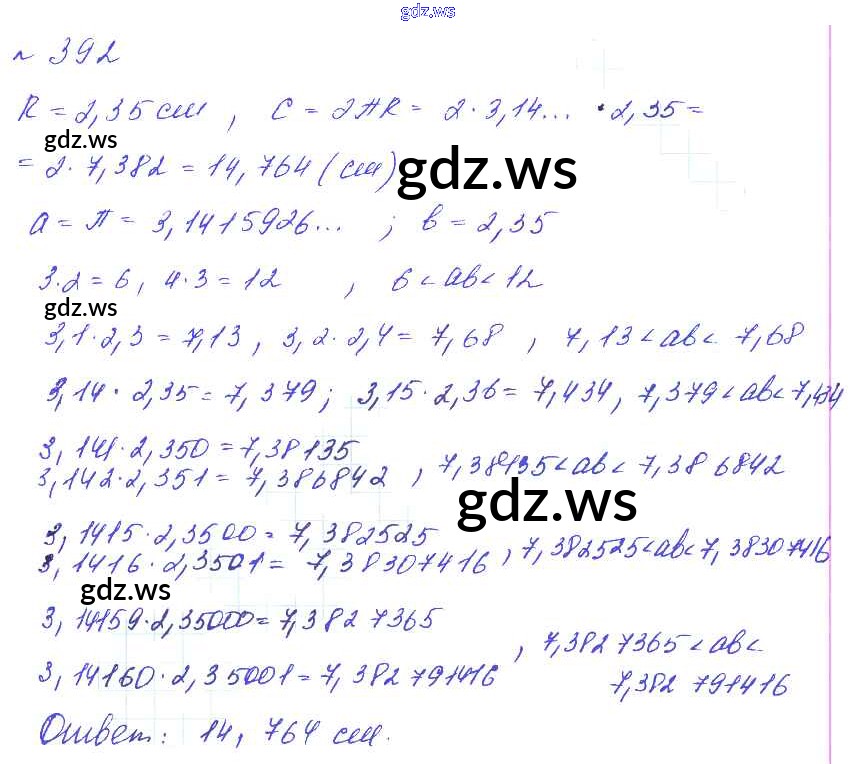 gdz.ws
№ 392
R = 2,35 см , C = 2πR = 2·3,14... · 2,35 =
gdz.ws
= 2· 7,382 = 14,764 (см)
gdz.ws
a = π = 3,1415926... ; b = 2,35
3·2 = 6, 4·3 = 12 , 6 < ab < 12
gdz.ws
3,1·2,3 = 7,13 , 3,2·2,4 = 7,68 , 7,13 < ab < 7,68
3,14 · 2,35 = 7,379; 3,15·2,36 = 7,434, 7,379 < ab < 7,434
3,141·2,350 = 7,38135
3,142·2,351 = 7,386842 , 7,38135 < ab < 7,386842
gdz.ws
3,1415·2,3500 = 7,382525
3,1416·2,3501 = 7,38307416 , 7,382525 < ab < 7,38307416
gdz.ws
3,14159·2,35000 = 7,3827365
3,14160·2,35001 = 7,382791416 , 7,3827365 < ab <
7,382791416
Ответ: 14,764 см.